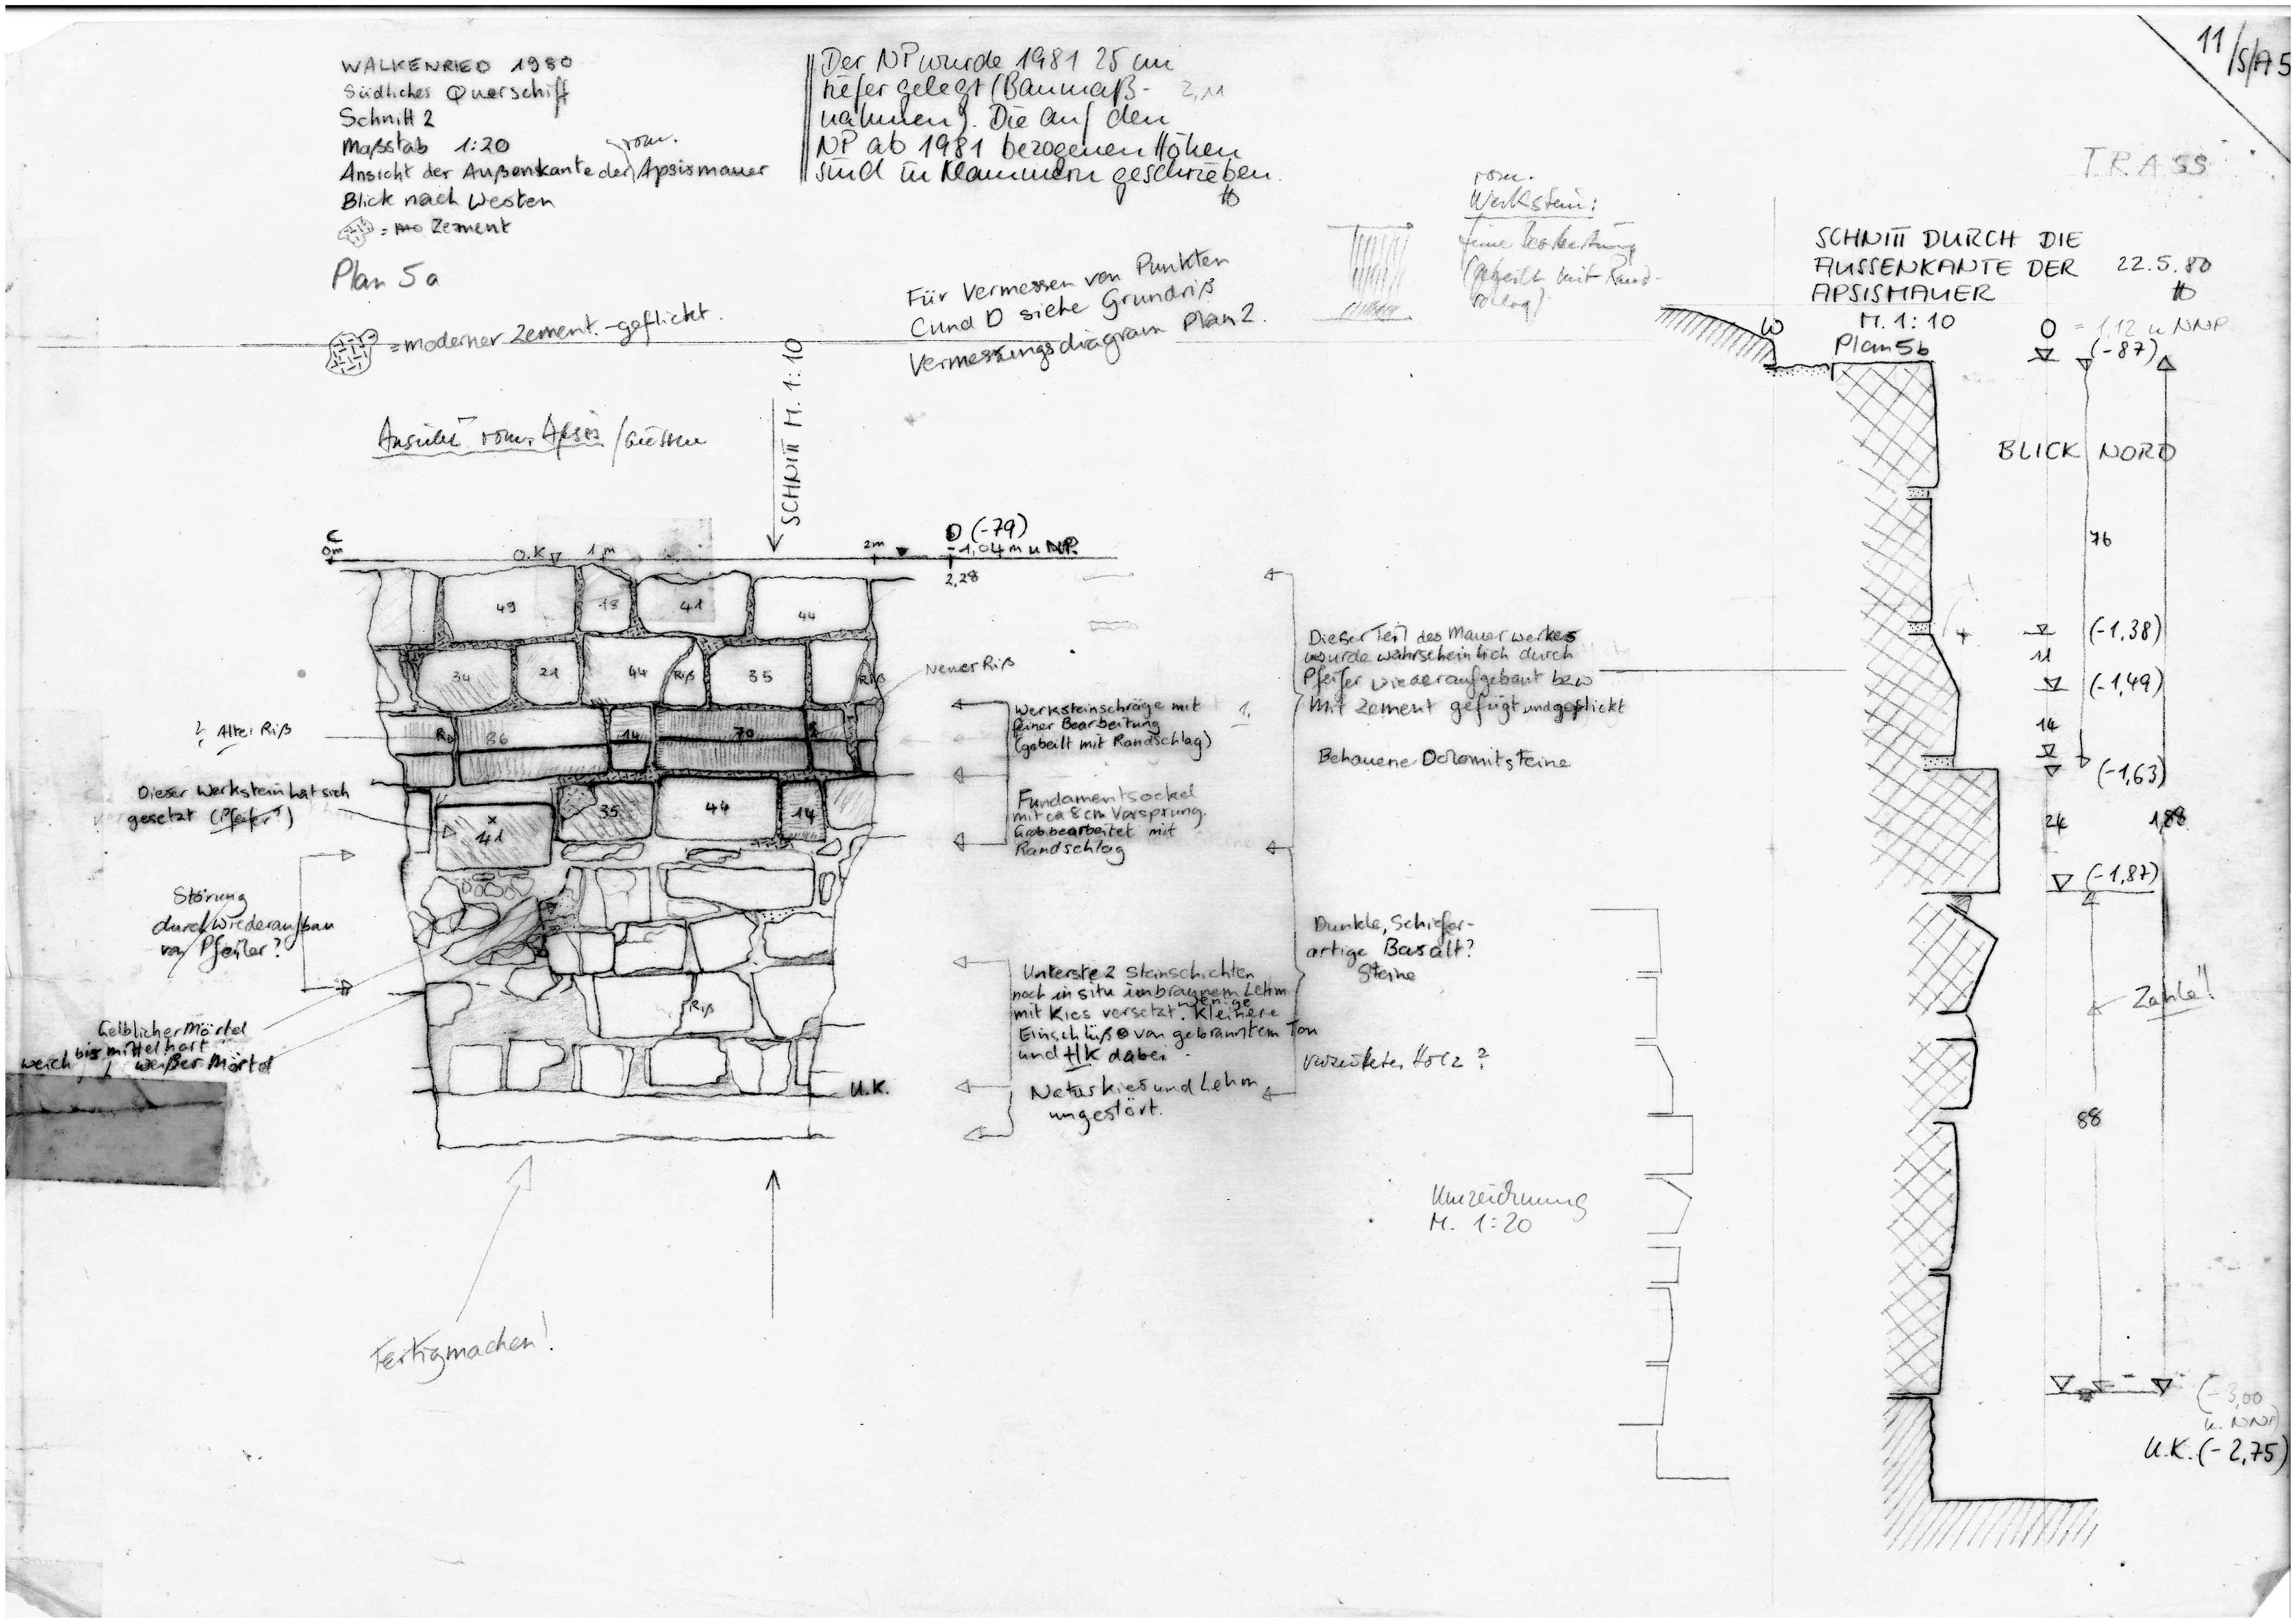 WALKENRIED 1980
Südliches Querschiff
Schnitt 2
Maßstab 1:20
rom.
Ansicht der Außenkante der Apsismauer
Blick nach Westen
= Zement
Plan 5a
= moderner Zement.-geflickt.
Ansicht rom. Apsis / außen
Der NP wurde 1981 25 cm
tiefer gelegt (Baumaß-
2,11
nahmen). Die auf den
NP ab 1981 bezogenen Höhen
sind in Klammern geschrieben.
Für Vermessen von Punkten
C und D siehe Grundriß
Vermessungsdiagram Plan 2.
SCHNITT M. 1:10
rom.
Werkstein:
feine Bearbeitung
(gebeilt mit Rand-
schlag)
11/S/A5
TRASS
SCHNITT DURCH DIE
AUSSENKANTE DER 22.5.80
APSISMAUER
M. 1:10
Plan 5b
W
O = 1,12 u NNP
(-87)
BLICK NORD
76
(-1,38)
11
(-1,49)
14
(-1,63)
24
1,88
(-1,87)
Zahlé!
88
(-3,00
u. NNP)
U.K. (-2,75)
C
0m
O.K
1m
2m
D (-79)
-1,04 m u NP.
2,28
49
18
41
44
34
21
44
Riß
35
Riß
Neuer Riß
? Alter Riß
86
14
70
Dieser Werkstein hat sich
gesetzt (Pfeifer?)
x
41
35
44
14
Störung
durch Wiederaufbau
von Pfeiler?
Riß
Gelblicher Mörtel
weich bis mittelhart
weißer Mörtel
U.K.
Werksteinschräge mit
feiner Bearbeitung
(gebeilt mit Randschlag)
1.
Fundamentsockel
mit ca 8 cm Vorsprung.
Grob bearbeitet mit
Randschlag
Unterste 2 Steinschichten
noch in situ im braunem Lehm
mit Kies versetzt. wenige Kleinere
Einschlüße von gebranntem Ton
und HK dabei.
Naturkies und Lehm
ungestört.
Dieser Teil des Mauerwerkes
wurde wahrscheinlich durch
Pfeifer wiederaufgebaut bzw
Mit Zement gefügt und geflickt
Behauene Dolomitsteine
Dunkle, Schiefer-
artige Basalt?
Steine
Holz?
Umzeichnung
M. 1:20
Fertigmachen!